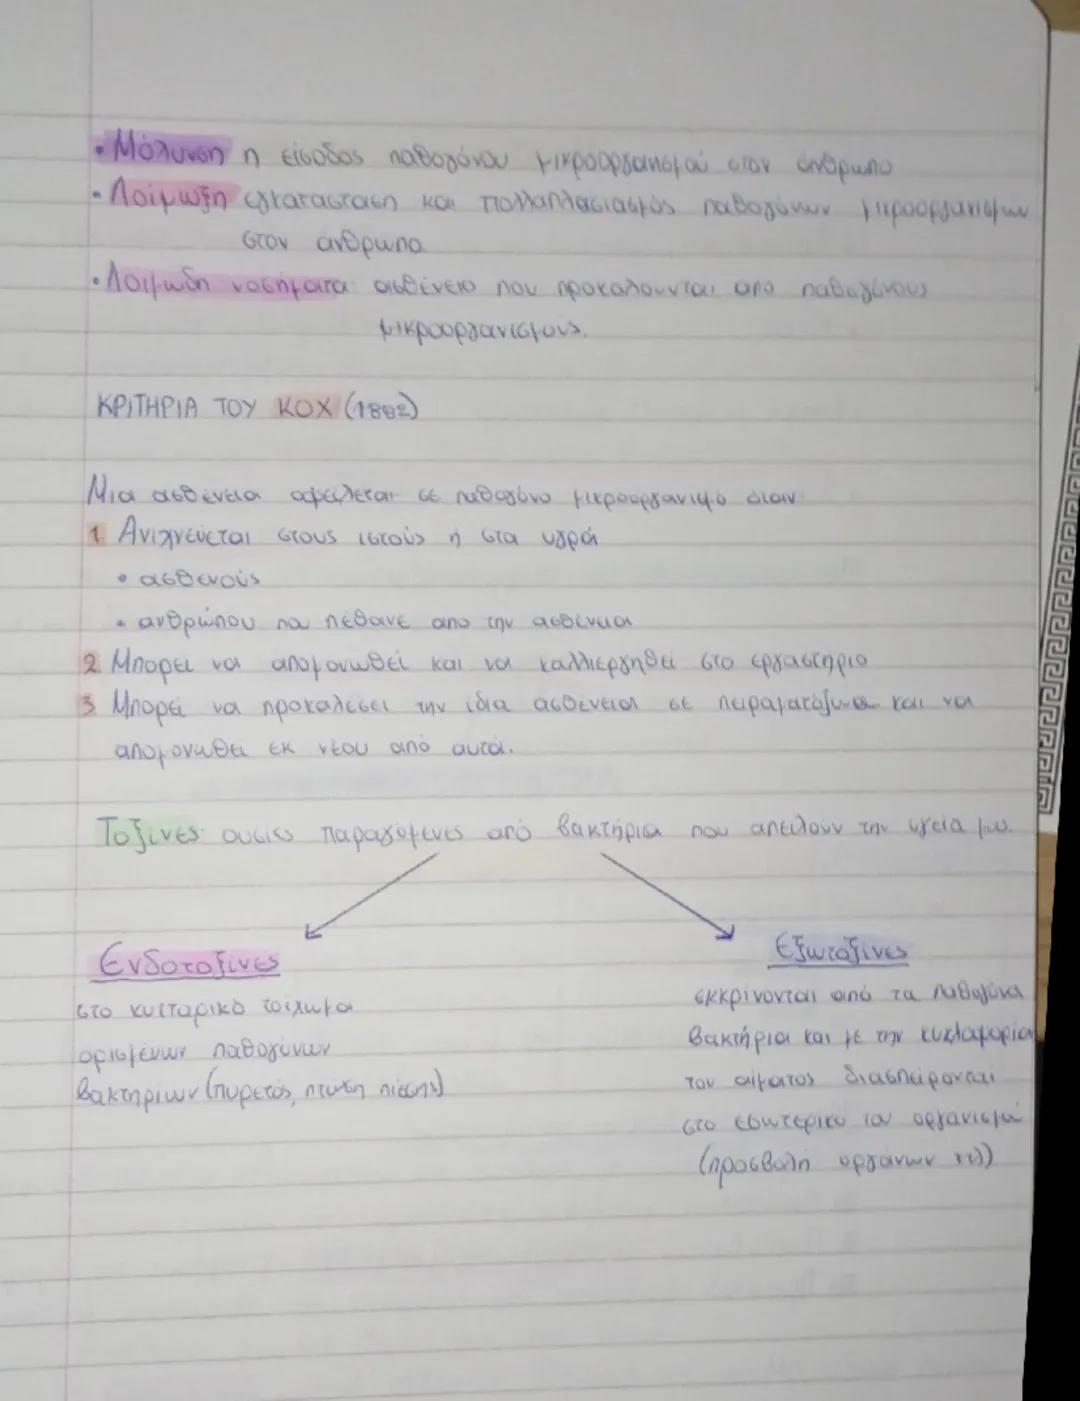 • Μόλυνση η είσοδος παθογόνου μικροοργανισμού στον άνθρωπο
• Λοίμωξη εγκατασταση και πολλαπλασιασμός παθογόνων μικροοργανισμων
στον ανθρωπο
• Λοιμωδη νοσήματα ασθένειο που προκαλουνται απο παθογόνους
μικροοργανισμους.
ΚΡΙΤΗΡΙΑ ΤΟΥ ΚΟΧ (1882)
Μια ασθένεια οφείλεται σε παθογόνο μικροοργανισμό όταν
1. Ανιχνεύεται στους ιστούς ή στα υγρά
• ασθενούς
• ανθρώπου που πέθανε απο την ασθένεια
2. Μπορει να απομονωθεί και να καλλιεργηθεί στο εργαστηριο
3 Μπορεί να προκαλέσει την ίδια ασθένεια σε πειραματόζωα και να
απομονωθει εκ νέου από αυτά.
Τοξίνες: ουσίες παραγόμενες από βακτήρια που απειλουν την υγεία μας.
Ενδοτοξίνες
στο κυτταρικό τοίχωμα
ορισμένων παθογόνων
βακτηρίων (πυρετός, πτώση πίεσης)
Εξωτοξίνες
εκκρίνονται από τα παθογόνα
βακτήρια και με την κυκλοφορία
του αίματος διασπείρονται
στο εσωτερικό του οργανισμού
(προσβολή οργάνων κτλ)